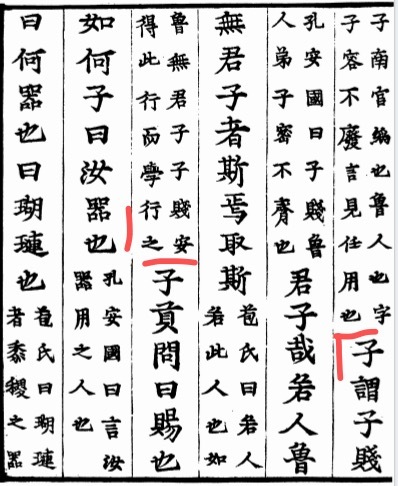 子南官縚也魯人也字
子容不廢言見任用也
子謂子賤
孔安國曰子賤魯
人弟子密不齊也
君子哉若人魯
無君子者斯焉取斯
苞氏曰若人
若此人也如
魯無君子子賤安
得此行而學行之
子貢問曰賜也
如何子曰汝器也
孔安國曰言汝
器用之人也
曰何器也曰瑚璉也
苞氏曰瑚璉
者黍稷之器